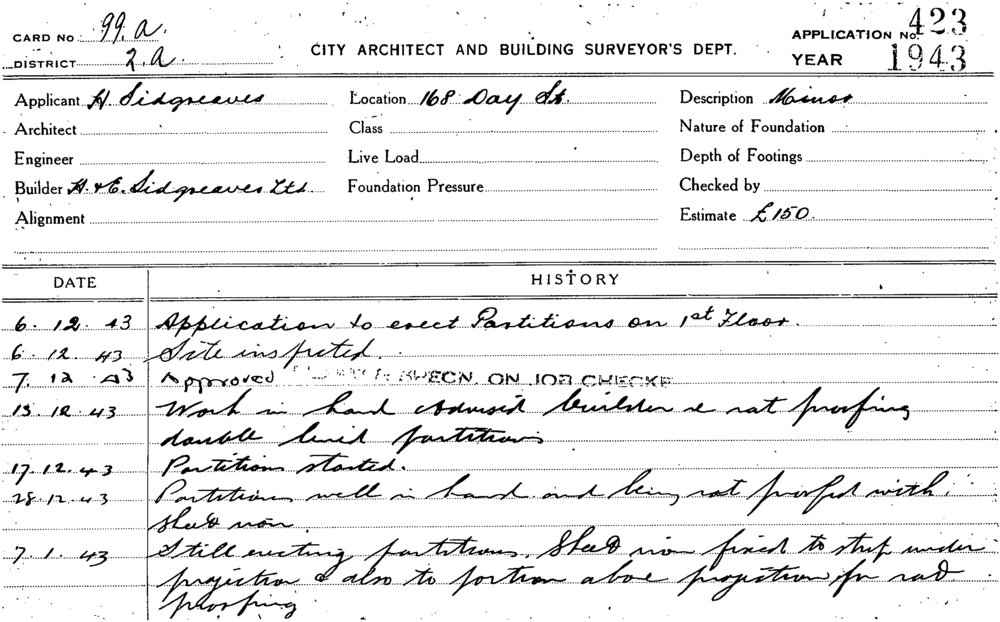 CARD No 99.a.
DISTRICT 2.a.
CITY ARCHITECT AND BUILDING SURVEYOR'S DEPT.
APPLICATION No. 423
YEAR 1943
Applicant H Sidgreaves
Location 168 Day St.
Description Minor
Architect
Class
Nature of Foundation
Engineer
Live Load
Depth of Footings
Builder H. & E. Sidgreaves Ltd.
Foundation Pressure
Checked by
Alignment
Estimate £150.
DATE HISTORY
6. 12. 43 Application to erect Partitions on 1st Floor.
6. 12. 43 Site inspected.
7. 12 43 Approved SPECN. ON JOB CHECKE
15. 12. 43 Work in hand advised builder re rat proofing
double lined partitions
17. 12. 43 Partitions started.
28. 12. 43 Partitions well in hand and being rat proofed with
sheet iron.
7. 1. 43 Still erecting partitions. Sheet iron fixed to strip under
projection & also to portion above projection for rat
proofing